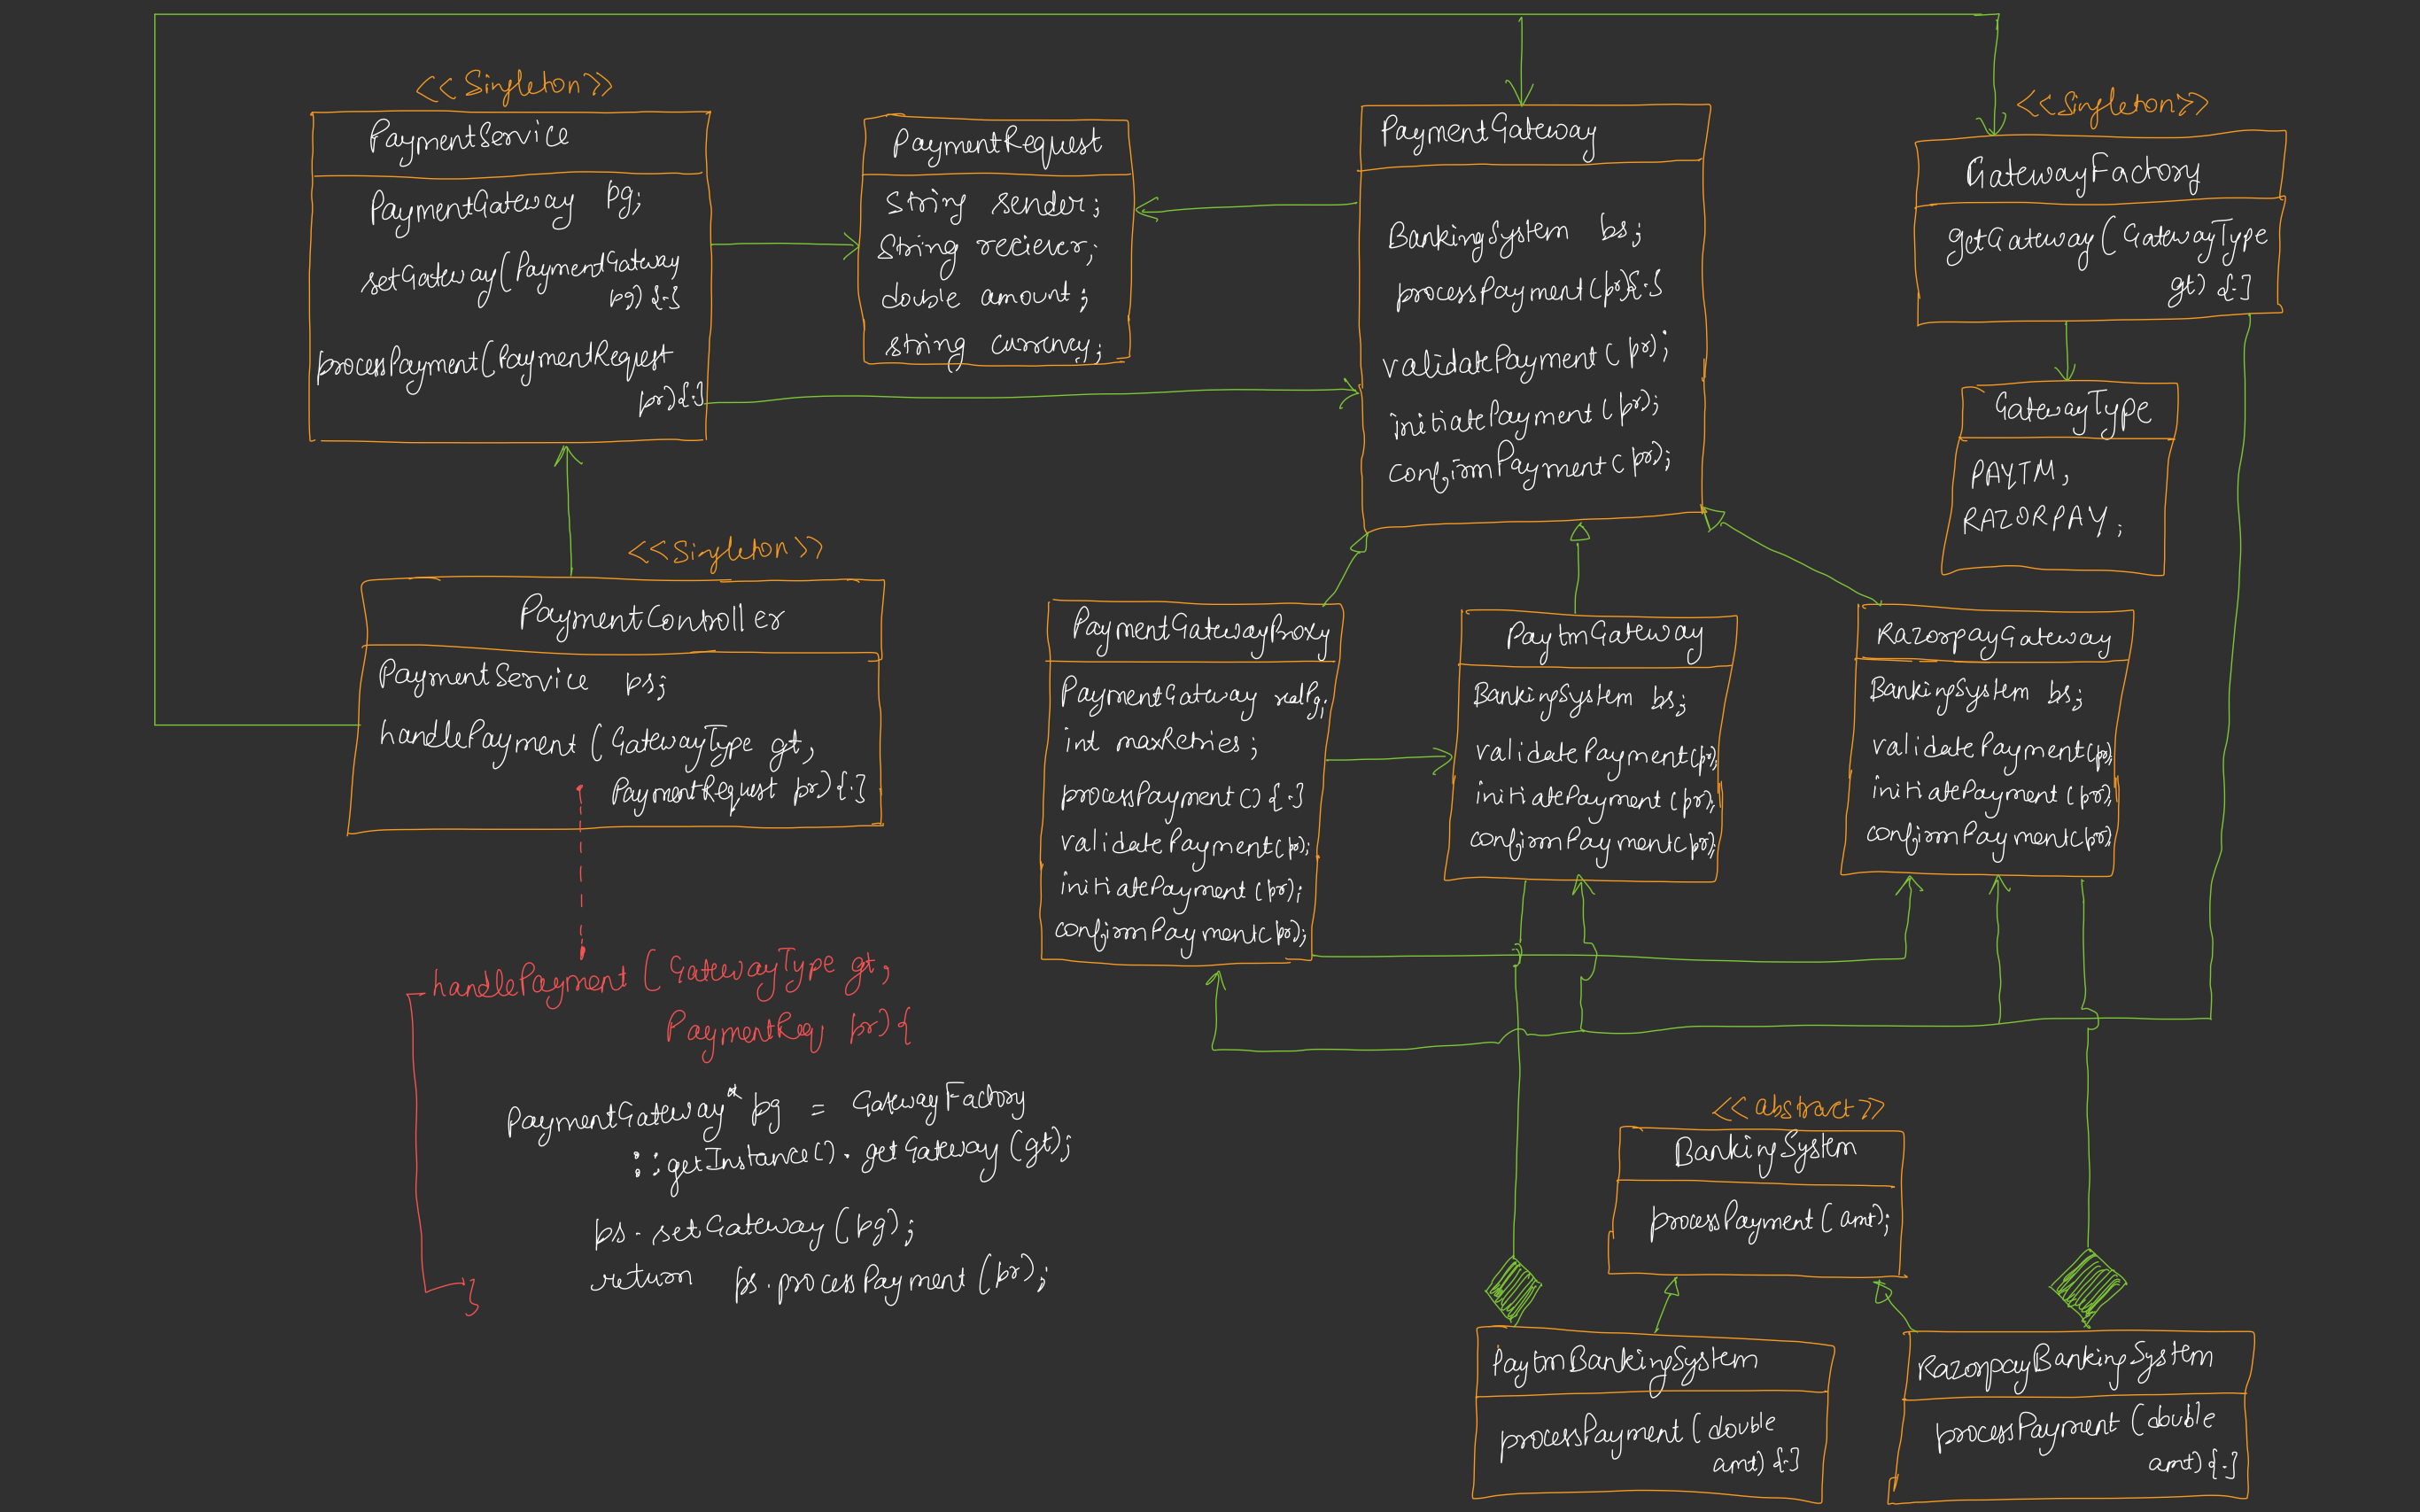 <<Singleton>>
PaymentService
PaymentGateway pg;
setGateway(PaymentGateway
pg){.}
processPayment(PaymentRequest
pr){.}
PaymentRequest
String sender;
String reciever;
double amount;
string currency;
PaymentGateway
BankingSystem bs;
processPayment(pr){.}
validatePayment(pr);
initiatePayment(pr);
confirmPayment(pr);
<<Singleton>>
GatewayFactory
getGateway(GatewayType
gt) {.}
GatewayType
PAYTM,
RAZORPAY;
<<Singleton>>
PaymentController
PaymentService ps;
handlePayment(GatewayType gt,
PaymentRequest pr){.}
PaymentGatewayProxy
PaymentGateway realPg;
int maxRetries;
processPayment(){.}
validatePayment(pr);
initiatePayment(pr);
confirmPayment(pr);
PaytmGateway
BankingSystem bs;
validatePayment(pr);
initiatePayment(pr);
confirmPayment(pr);
RazorpayGateway
BankingSystem bs;
validatePayment(pr);
initiatePayment(pr);
confirmPayment(pr);
handlePayment(GatewayType gt,
PaymentReq pr){
PaymentGateway* pg = GatewayFactory
::getInstance().getGateway(gt);
ps.setGateway(pg);
return ps.processPayment(pr);
}
<<abstract>>
BankingSystem
processPayment(amt);
PaytmBankingSystem
processPayment(double
amt){.}
RazorpayBankingSystem
processPayment(double
amt){.}